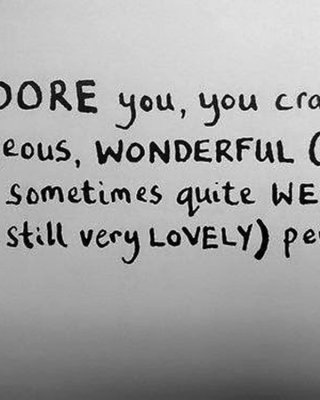 DORE you, you cra
eous, WONDERFUL (
sometimes quite WE
still very LOVELY) pe